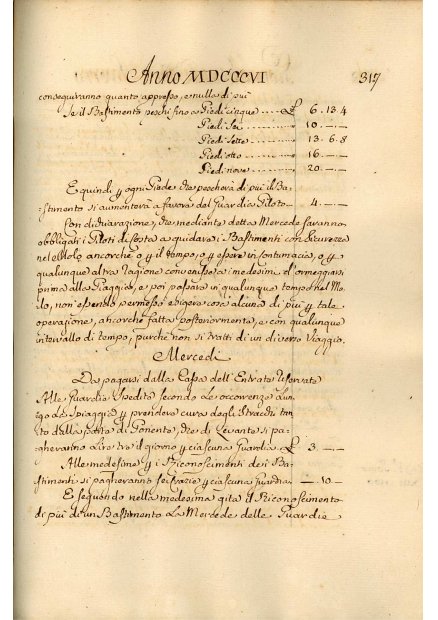 Anno MDCCCVI 317
conseguiranno quanto appresso, e nulla di più
Se il Bastimento peschi fino a Piedi cinque £ 6. 13. 4
Piedi Sei 10. — —
Piedi Sette 13. 6. 8
Piedi otto 16. — —
Piedi nove 20. — —
E quindi p ogni Piede che pescherà di più il Ba-
stimento si aumenterà a favore del Guardia Piloto 4. — —
Con dichiarazione, che mediante detta Mercede saranno
obbligati i Piloti di Costa a guidare i Bastimenti con sicurezza
nel Molo ancorchè o p il tempo, o p essere in Contumacia, o p
qualunque altra ragione convenisse a medesimi d'ormeggiarsi
prima alla Spiaggia, e poi passare in qualunque tempo nel Mo-
lo, non essendo permesso esigere cosa alcuna di più p tale
operazione, ancorche fatta posteriormente, e con qualunque
intervallo di tempo, purchè non si tratti di un diverso Viaggio.
Mercedi
Da pagarsi dalla Cassa dell'Entrate Riservate
Alle Guardie Spedite secondo le occorrenze Lun-
go le Spiaggie p prendere cura degli Stracchi tan-
to dalla parte di Ponente, che di Levante si pa-
gheranno Lire tre il giorno p ciascuna Guardia £ 3. — —
Alle medesime p i Riconoscimenti dei Ba-
stimenti si pagheranno sei Crazie p ciascuna Guardia — 10. —
E seguendo nella medesima gita il Riconoscimento
di più di un Bastimento La Mercede delle Guardie